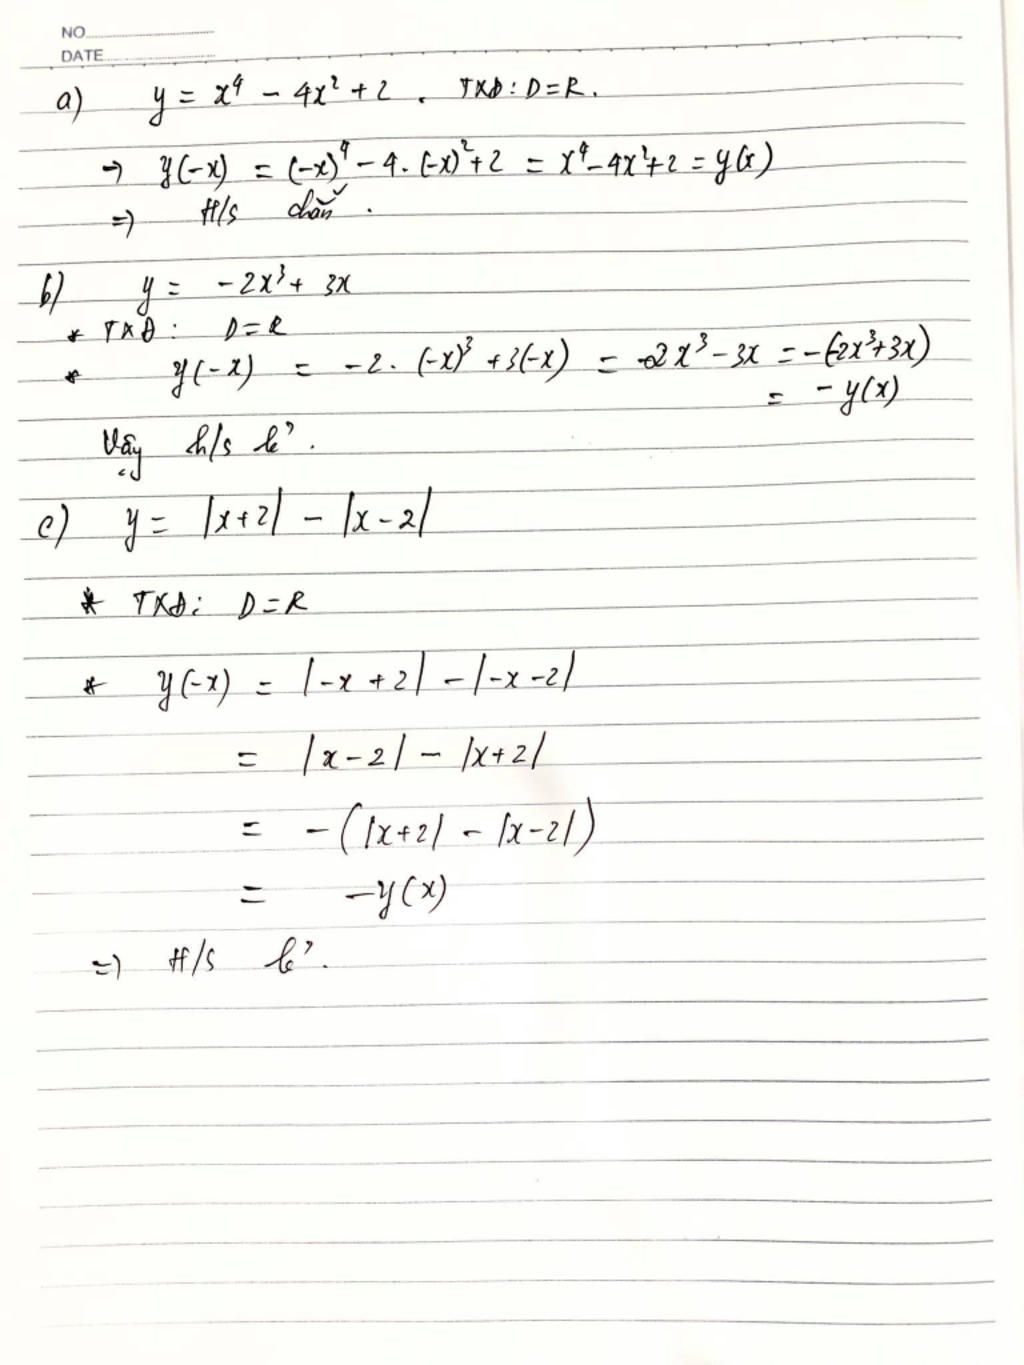 NO
DATE
a) y = x⁴ - 4x² + 2 . TXĐ: D = R.
→ y(-x) = (-x)⁴ - 4.(-x)² + 2 = x⁴ - 4x² + 2 = y(x)
=) H/s chẵn.
b) y = -2x³ + 3x
* TXĐ: D = R
* y(-x) = -2.(-x)³ + 3(-x) = 2x³ - 3x = -(-2x³+3x)
= -y(x)
Vậy h/s lẻ.
c) y = |x+2| - |x-2|
* TXĐ: D = R
* y(-x) = |-x+2| - |-x-2|
= |x-2| - |x+2|
= -(|x+2| - |x-2|)
= -y(x)
=) H/s lẻ.